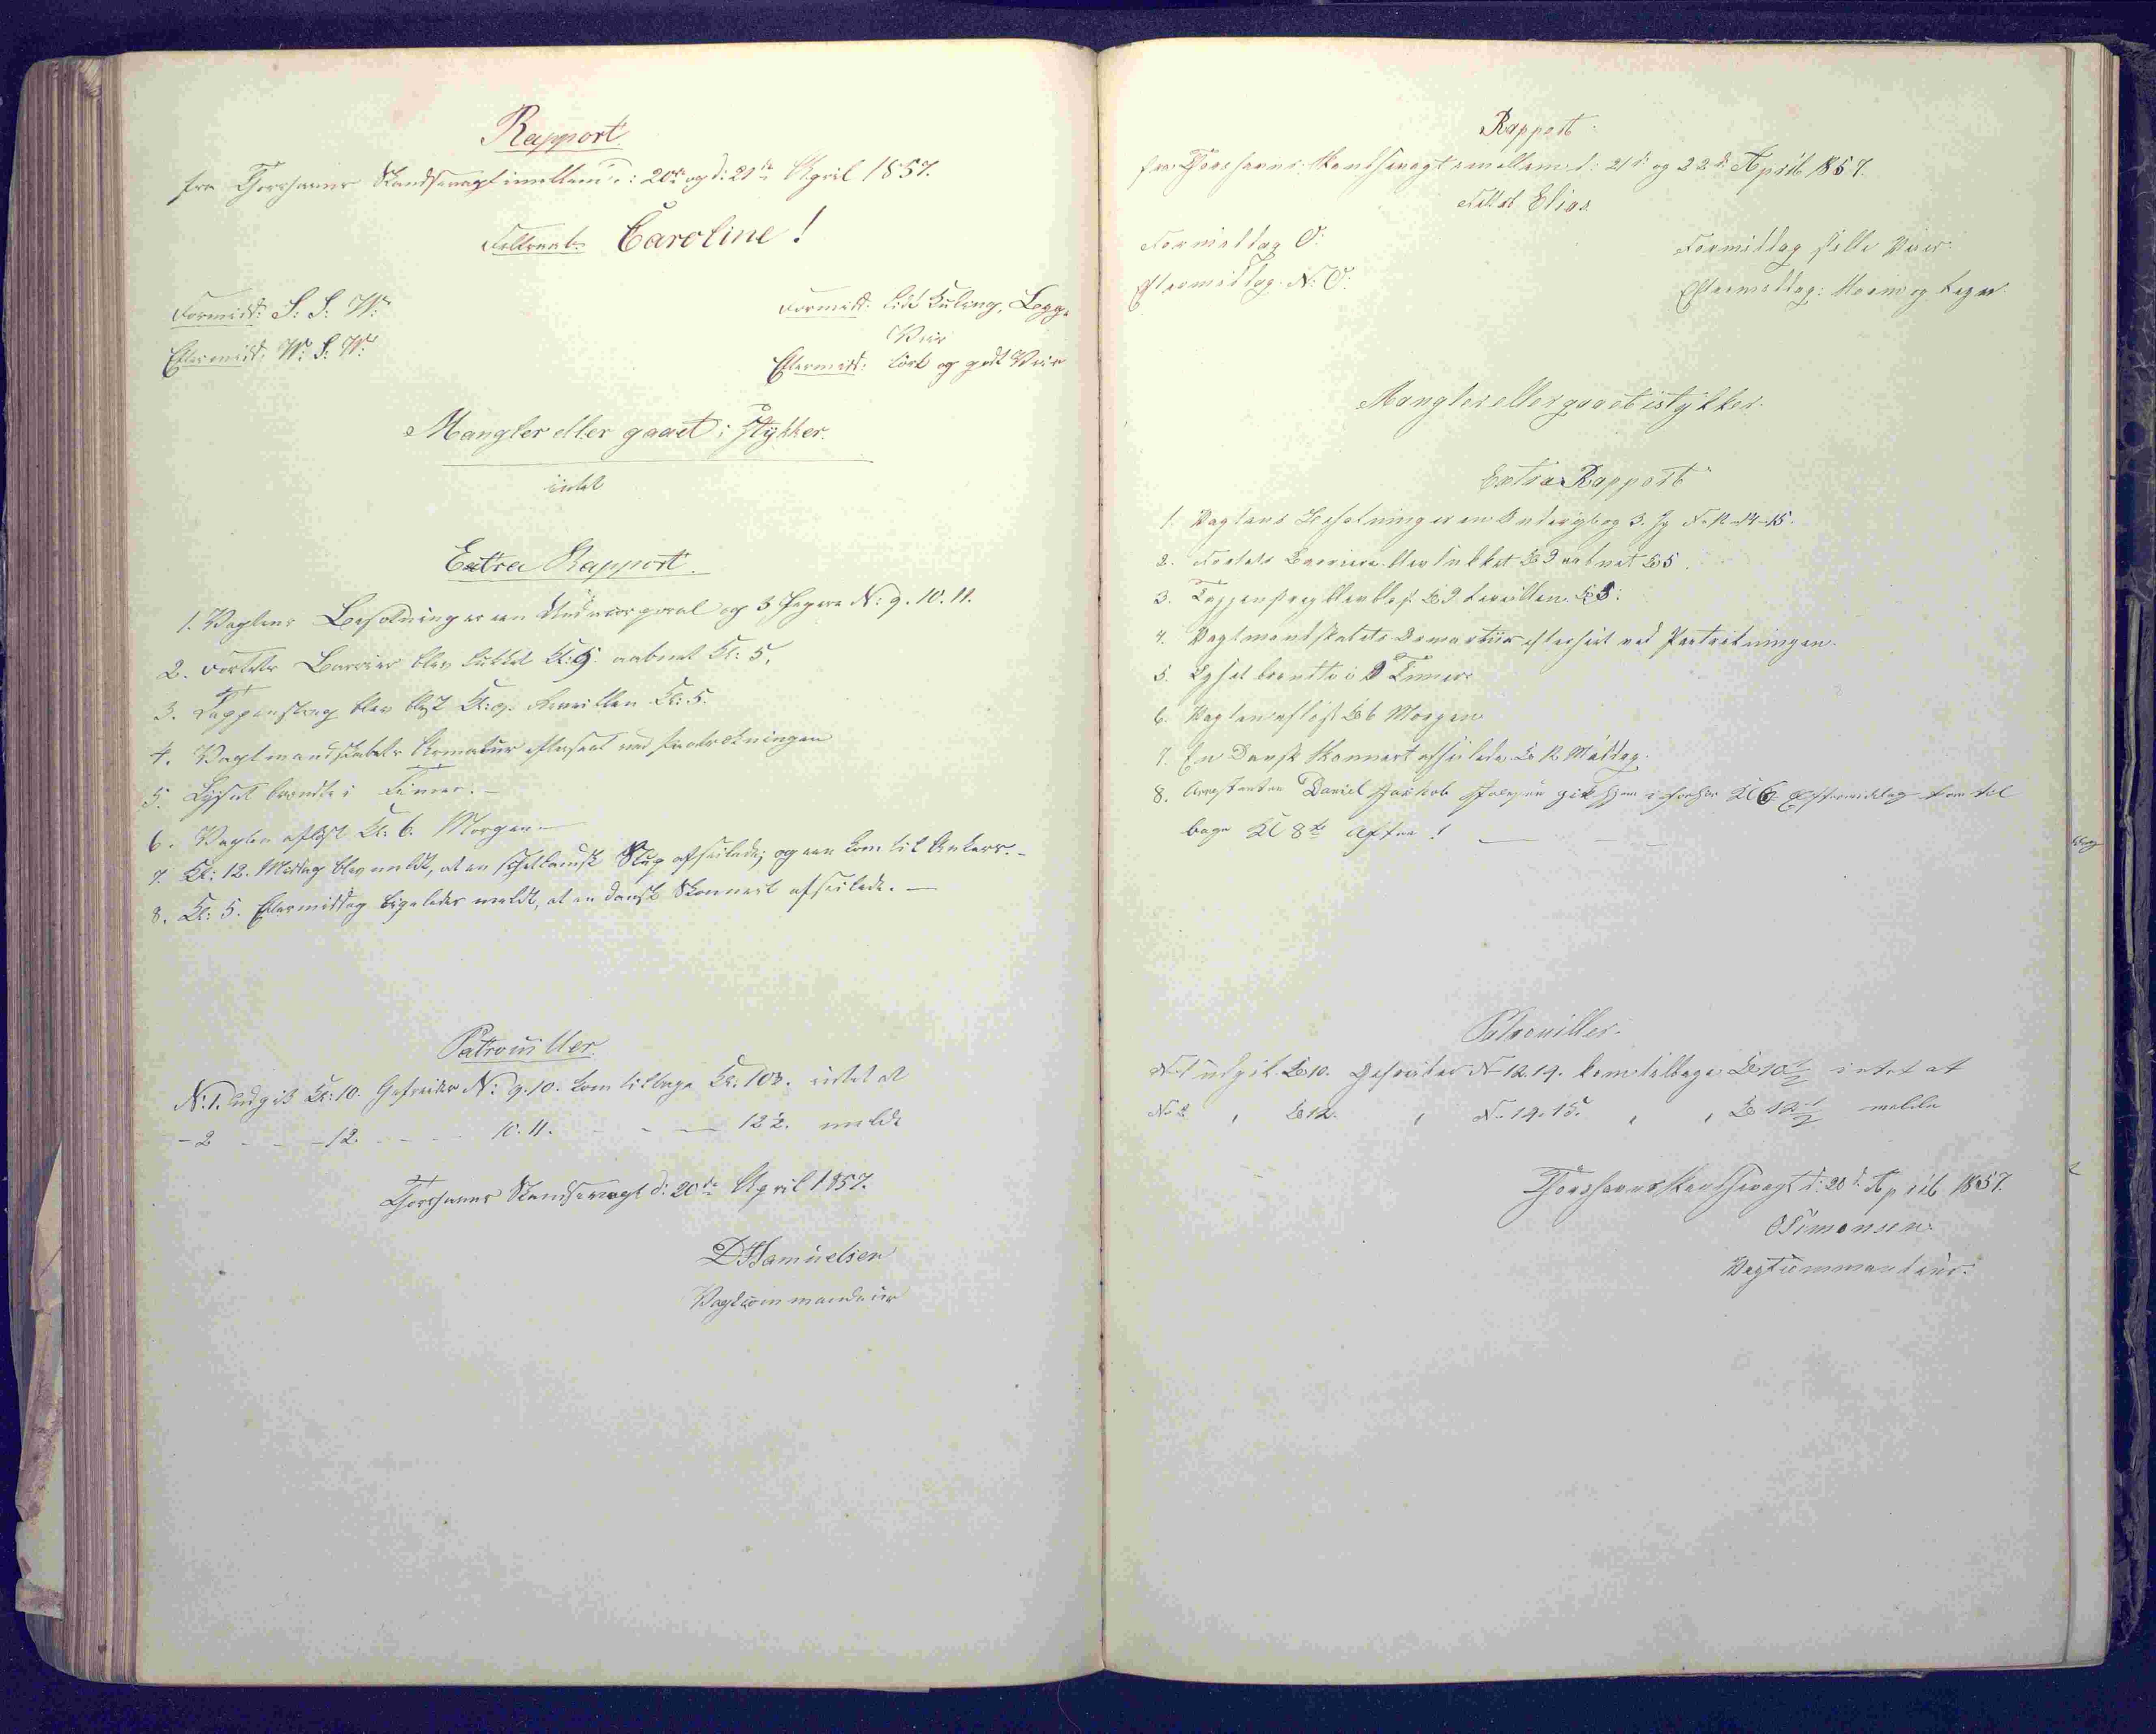 Rapport.
fra Thorshavns Skandsevagt imellem d: 20de og d: 21de April 1857.
Feltraab Caroline!
Formidd: S: S: W:
Eftermidd: W: S: W:
Formidd: lidt Kuling, Regn
Veir
Eftermidd: tört og godt Veir
Mangler eller gaaet i Stykker.
intet
Extra Rapport.
1. Vagtens Besætning er een Undercorporal og 3 Jægere N: 9. 10. 11.
2. Fortets Barrier blev lukket Kl: 9. aabnet Kl: 5.
3. Tappenstreg blev blæst Kl: 9. Reveillen Kl: 5.
4. Vagtmandskabets Armatur efterseet ved Fratrædningen
5. Lyset brændte i Timer. -
6. Vagten aflöst Kl. 6. Morgen -
7. Kl: 12. Middag blev meldt, at en schetlandsk Slup afseilede; og een kom til Ankers. -
8. Kl: 5. Eftermiddag ligeledes meldt, at en dansk Skonnert afseilede. -
Patrouiller.
N: 1. udgik Kl: 10. Gefreider N: 9. 10. kom tilbage Kl: 10½. intet at
- 2 - - - 12. - - - 10. 11. - - - 12½. melde
Thorshavns Skandsevagt d: 20de April 1857.
DHSamuelsen
Vagtcommandeur
Rapport
fra Thorshavns Skandsevagt imellem d: 21d: og 22d: April 1857.
Feltr Elias
Formiddag O:
Eftermiddag N: O:
Formiddag stille Veir.
Eftermiddag: Storm og Regn.
Mangler eller gaaet i stykker.
Extra Rapport
1. Vagtens Besætning er en Underjæg og 3. Jg N. 12-14-15.
2. Fortets Barriere blev lukket Kl 9 aabnet Kl 5.
3. Tappenstreg blev blæst Kl 9 Reveillen Kl 5.
4. Vagtmandskabets Armartur efterseet ved Fratrædningen.
5. Lyset brændte i 9 Timer
6. Vagten aflöst Kl 6 Morgen
7. En Dansk Skonnert afseilede Kl 12 Middag.
8. Arrestanten Daniel Jackob gik hjem i Forhør Kl 6 Eftermiddag kom til
bage Kl 8te Aften !
Patrouiller.
N. 1 udgik Kl 10. Gefreider N 12. 14. kom tilbage Kl 10½ intet at
N. 2 , Kl 12. , N. 14. 15. , , Kl 12½ melde
Thorshavns Skandsevagt d: 20d. April 1857.
OSimonsen
Vagtcommandeur.